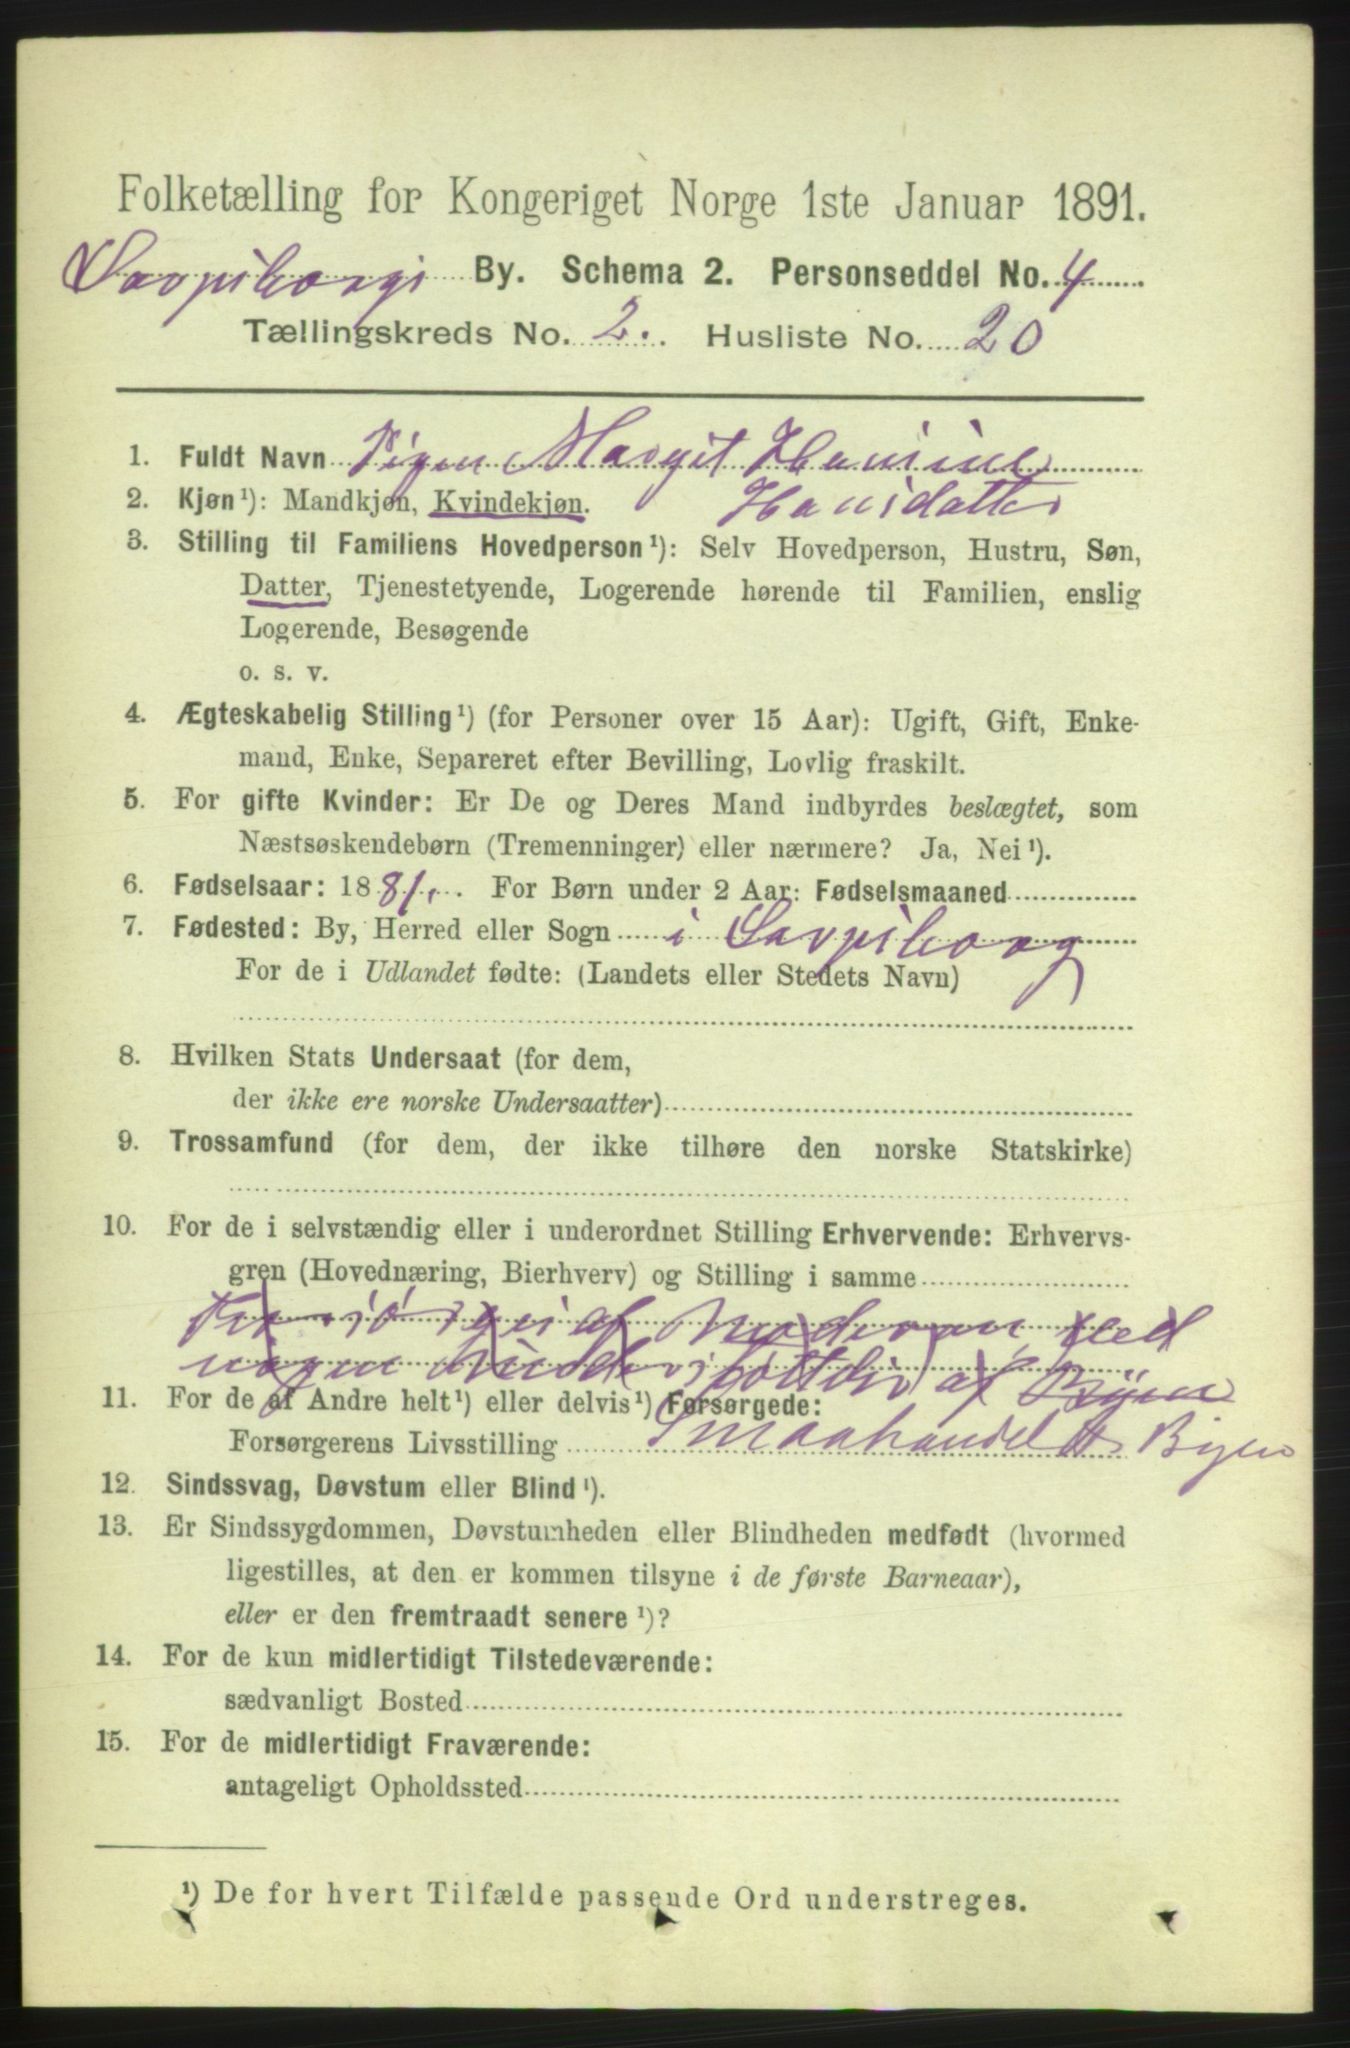 Folketælling for Kongeriget Norge 1ste Januar 1891.
Sarpsborgs By. Schema 2. Personseddel No. 4
Tællingskreds No. 2. Husliste No. 20
1. Fuldt Navn Pigen Margit Hansine
2. Kjøn¹): Mandkjøn, Kvindekjøn. Hansdatter
3. Stilling til Familiens Hovedperson¹): Selv Hovedperson, Hustru, Søn,
Datter, Tjenestetyende, Logerende hørende til Familien, enslig
Logerende, Besøgende
o. s. v.
4. Ægteskabelig Stilling¹) (for Personer over 15 Aar): Ugift, Gift, Enke-
mand, Enke, Separeret efter Bevilling, Lovlig fraskilt.
5. For gifte Kvinder: Er De og Deres Mand indbyrdes beslægtet, som
Næstsøskendebørn (Tremenninger) eller nærmere? Ja, Nei¹).
6. Fødselsaar: 1881. For Børn under 2 Aar: Fødselsmaaned
7. Fødested: By, Herred eller Sogn i Sarpsborg
For de i Udlandet fødte: (Landets eller Stedets Navn)
8. Hvilken Stats Undersaat (for dem,
der ikke ere norske Undersaatter)
9. Trossamfund (for dem, der ikke tilhøre den norske Statskirke)
10. For de i selvstændig eller i underordnet Stilling Erhvervende: Erhvervs-
gren (Hovednæring, Bierhverv) og Stilling i samme
af Moderen, ved
nogen af Byen
11. For de af Andre helt¹) eller delvis¹) Forsørgede:
Forsørgerens Livsstilling Smaahandel Byen
12. Sindssvag, Døvstum eller Blind¹).
13. Er Sindssygdommen, Døvstumheden eller Blindheden medfødt (hvormed
ligestilles, at den er kommen tilsyne i de første Barneaar),
eller er den fremtraadt senere¹)?
14. For de kun midlertidigt Tilstedeværende:
sædvanligt Bosted
15. For de midlertidigt Fraværende:
antageligt Opholdssted
¹) De for hvert Tilfælde passende Ord understreges.